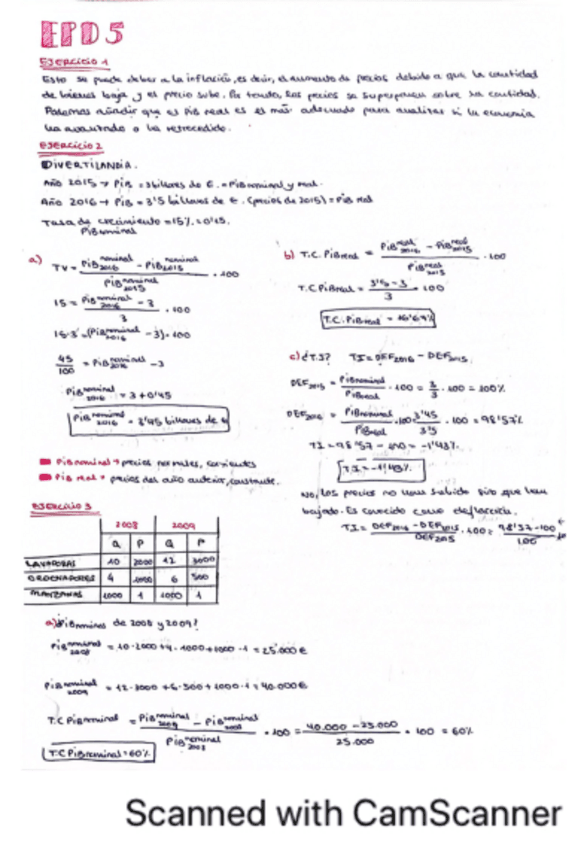 EPD 5
EJERCICIO 1
Esto se puede deber a la inflación, es decir, el aumento de precios debido a que la cantidad
de bienes baja y el precio sube. Por tanto, los precios se superponen sobre la cantidad.
Podemos añadir que el PIB real es el más adecuado para analizar si la economía
ha avanzado o ha retrocedido.
EJERCICIO 2
DIVERTILANDIA.
Año 2015 → PIB = 3 billones de €. = PIB nominal y real.
Año 2016 → PIB = 3'5 billones de €. (precios de 2015) = PIB real
Tasa de crecimiento = 15% = 0'15.
PIB nominal
a) TV = PIB nominal 2016 - PIB nominal 2015 / PIB nominal 2015 · 100
15 = PIB nominal 2016 - 3 / 3 · 100
15·3 = (PIB nominal 2016 - 3) · 100
45/100 = PIB nominal 2016 - 3
PIB nominal 2016 = 3 + 0'45
PIB nominal 2016 = 3'45 billones de €
b) T.C. PIB real = PIB real 2016 - PIB real 2015 / PIB real 2015 · 100
T.C. PIB real = 3'5 - 3 / 3 · 100
T.C. PIB real = 16'67%
c) ¿T.I? TI = DEF 2016 - DEF 2015.
DEF 2015 = PIB nominal / PIB real · 100 = 3/3 · 100 = 100%
DEF 2016 = PIB nominal / PIB real · 100 = 3'45 / 3'5 · 100 = 98'57%
TI = 98'57 - 100 = -1'43%.
T.I = -1'43%.
No, los precios no han subido sino que han
bajado. Es conocido como deflacción.
TI = DEF 2016 - DEF 2015 / DEF 2015 · 100 = 98'57 - 100 / 100
PIB nominal → precios normales, corrientes
PIB real → precios del año anterior, constante.
EJERCICIO 3
2008 2009
Q P Q P
LAVADORAS 10 2000 12 3000
ORDENADORES 4 1000 6 500
MANZANAS 1000 1 1000 1
a) ¿PIB nominal de 2008 y 2009?
PIB nominal 2008 = 10·2000 + 4·1000 + 1000·1 = 25.000 €
PIB nominal 2009 = 12·3000 + 6·500 + 1000·1 = 40.000 €
T.C PIB nominal = PIB nominal 2009 - PIB nominal 2008 / PIB nominal 2008 · 100 = 40.000 - 25.000 / 25.000 · 100 = 60%
T.C PIB nominal = 60%
Scanned with CamScanner